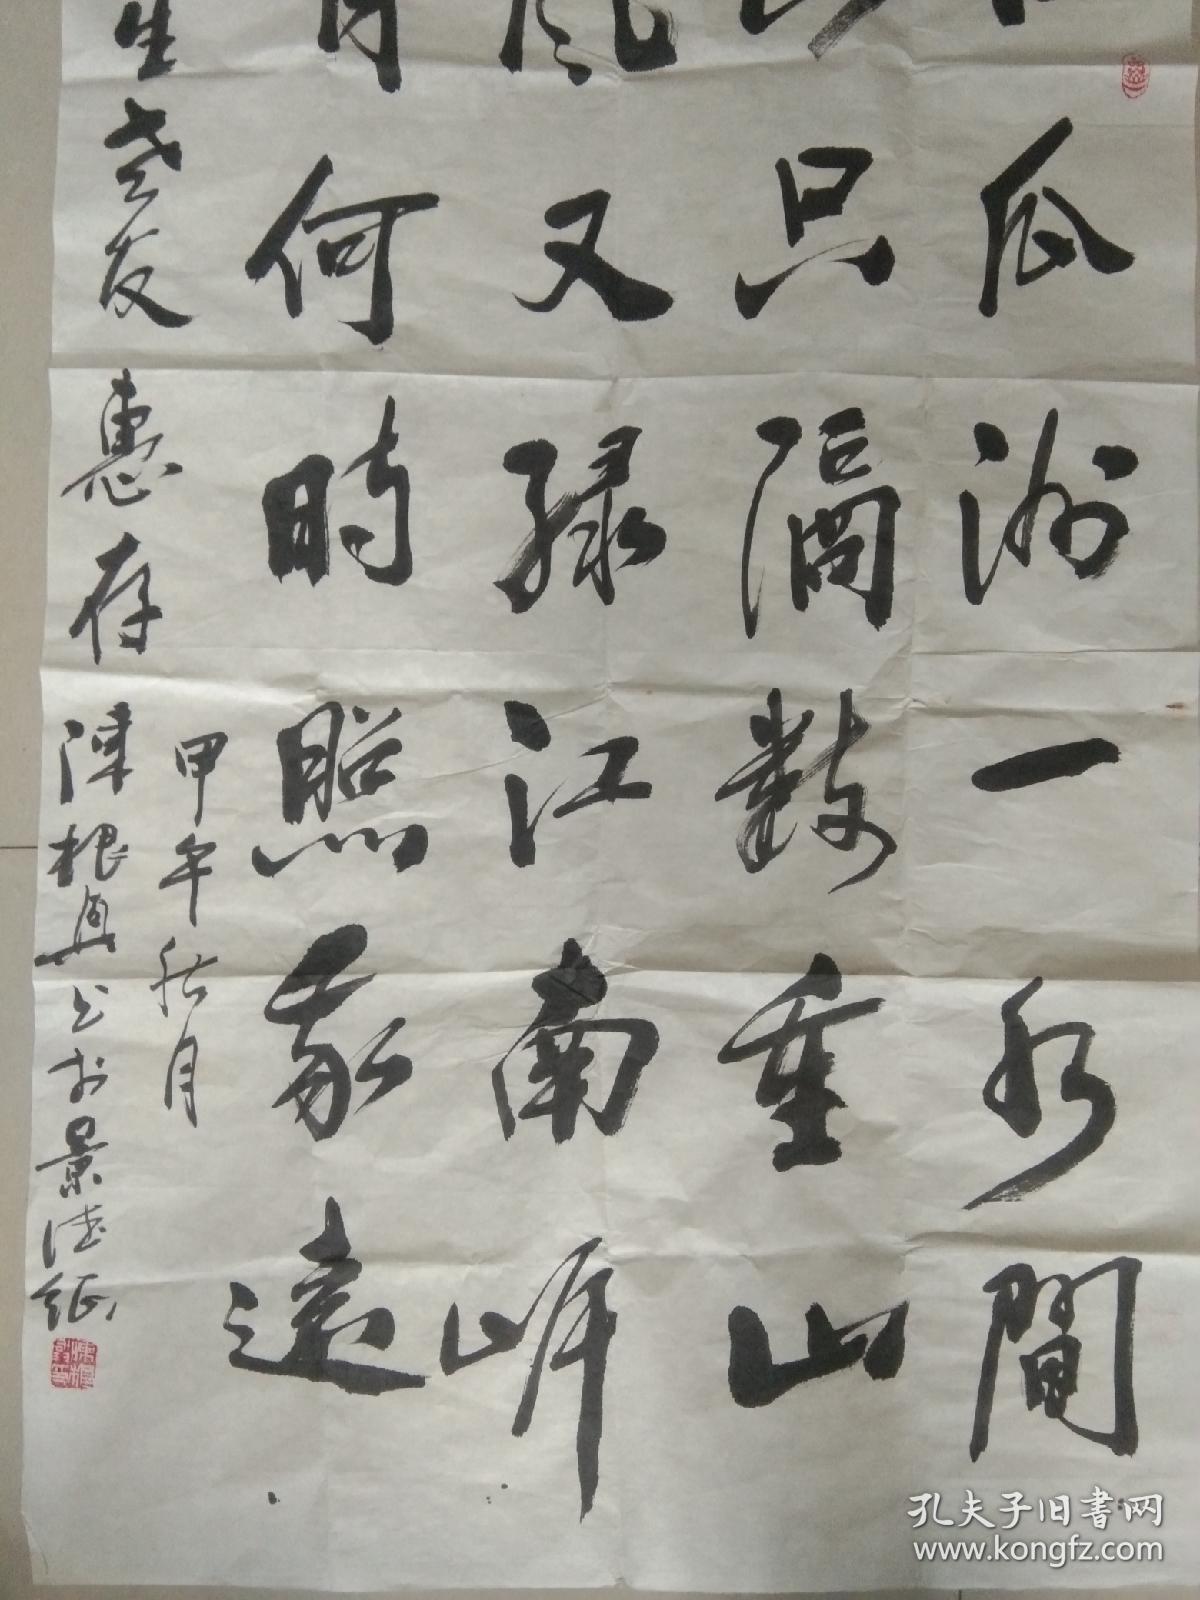 口瓜洲一水間
山只隔數重山
風又綠江南岸
月何時照我還
甲午秋月
生老友惠存 陳根興書於景德鎮
孔夫子旧书网
www.kongfz.com